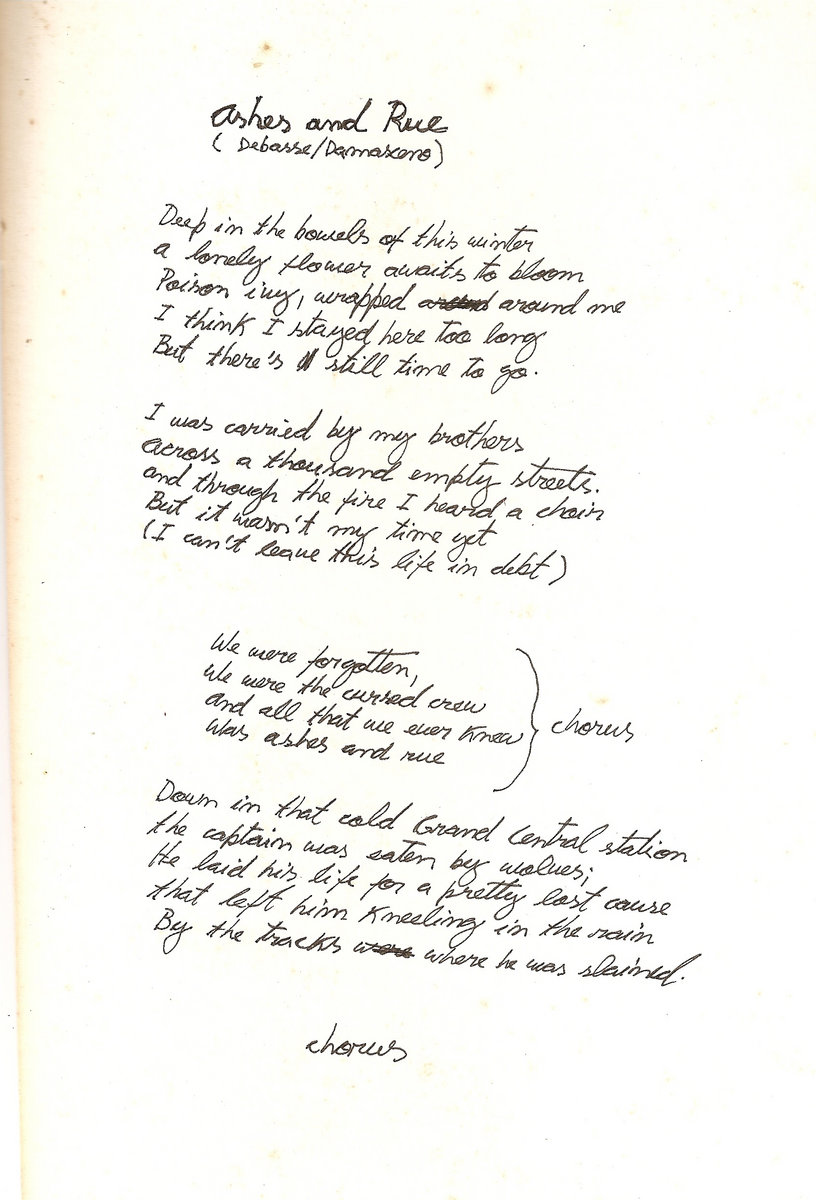 Ashes and Rue
(Debasse/Damasceno)
Deep in the bowels of this winter
a lonely flower awaits to bloom
Poison ivy, wrapped around me
I think I stayed here too long
But there's still time to go.
I was carried by my brothers
across a thousand empty streets.
and through the fire I heard a choir
But it wasn't my time yet
(I can't leave this life in debt)
We were forgotten,
We were the cursed crew
and all that we ever knew
was ashes and rue
chorus
Down in that cold Grand Central station
the captain was eaten by wolves;
He laid his life for a pretty lost cause
that left him kneeling in the rain
By the tracks where he was slained.
chorus